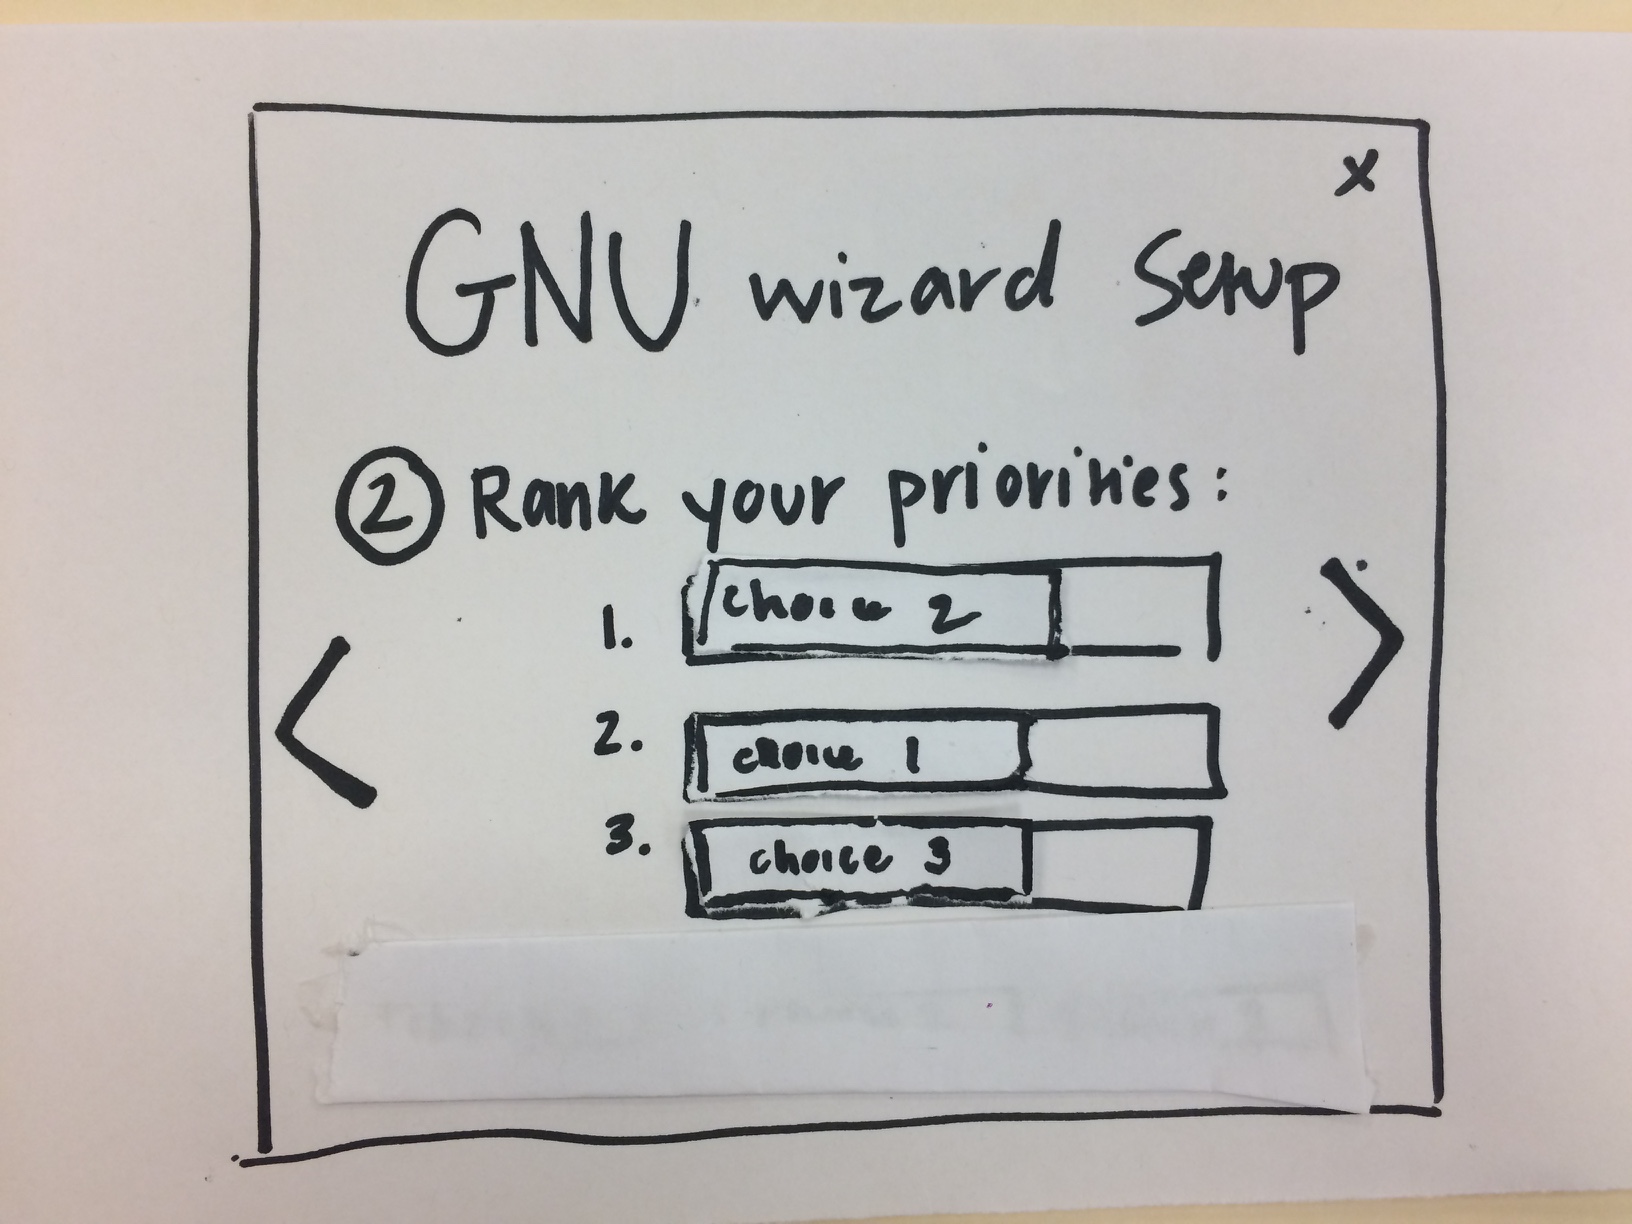 x
GNU wizard Setup
2 Rank your priorities:
1. choice 2
2. choice 1
3. choice 3